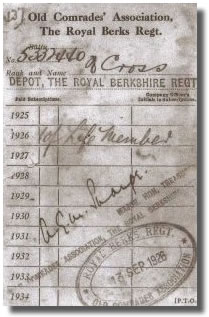 Old Comrades' Association,
The Royal Berks Regt.
No.
Cross
Rank and Name
DEPOT, THE ROYAL BERKSHIRE REGT
Paid Subscriptions.
Company Officer's
Initials to Subscriptions.
1925
1926
Life Member
1927
1928
1929
1930
1931
1932
1933
1934
ROYAL BERKS. REGT.
13 SEP 1926
OLD COMRADES ASSOCIATION
[P.T.O.